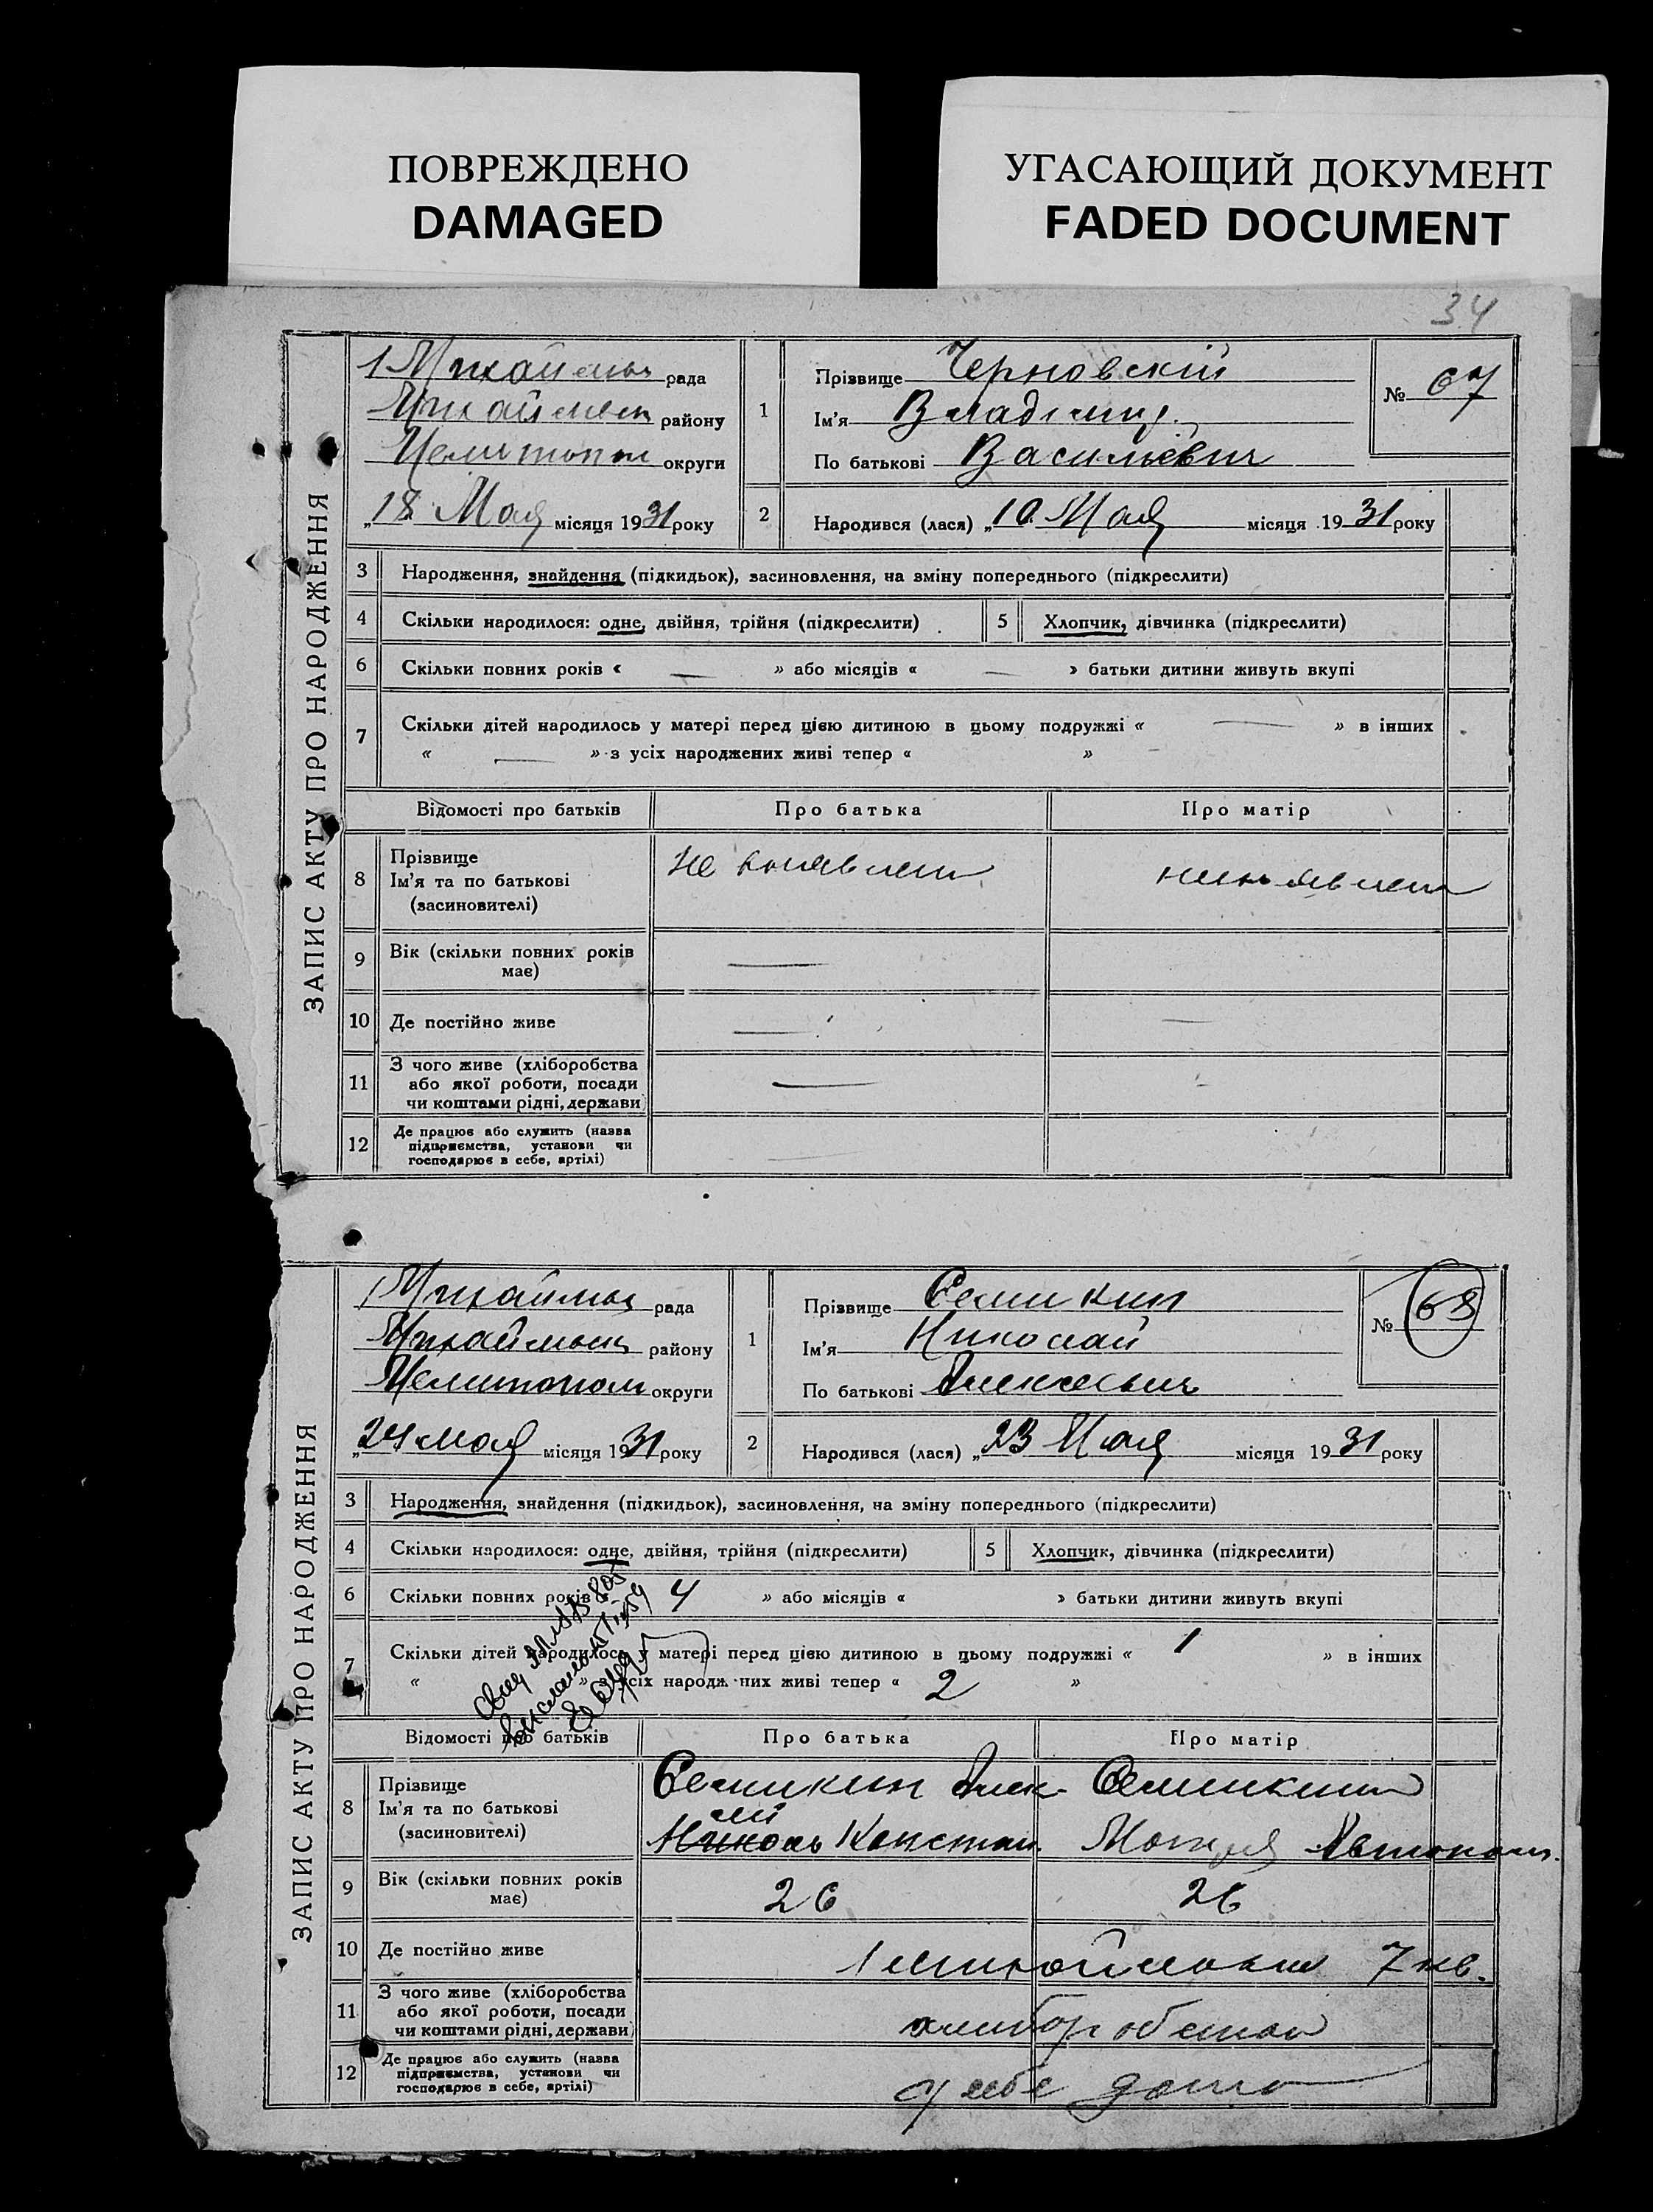 ПОВРЕЖДЕНО
DAMAGED
УГАСАЮЩИЙ ДОКУМЕНТ
FADED DOCUMENT
34
ЗАПИС АКТУ ПРО НАРОДЖЕННЯ
рада
району
округи
„18 Мая місяця 1931 року
1 Прізвище Черновскій
Ім'я Владимир.
По батькові Васильевич
№ 67
2 Народився (лася) „10 Мая місяця 1931 року
3 Народження, знайдення (підкидьок), засиновлення, на зміну попереднього (підкреслити)
4 Скільки народилося: одне, двійня, трійня (підкреслити) 5 Хлопчик, дівчинка (підкреслити)
6 Скільки повних років « — » або місяців « — » батьки дитини живуть вкупі
7 Скільки дітей народилось у матері перед цією дитиною в цьому подружжі « — » в інших
« — » з усіх народжених живі тепер « »
Відомості про батьків Про батька Про матір
8 Прізвище
Ім'я та по батькові
(засиновителі)
Не выявлен
невыявлена
9 Вік (скільки повних років
має) —
10 Де постійно живе — —
11 З чого живе (хліборобства
або якої роботи, посади
чи коштами рідні, держави) —
12 Де працює або служить (назва
підприємства, установи чи
господарює в себе, артілі)
ЗАПИС АКТУ ПРО НАРОДЖЕННЯ
рада
району
округи
„24 мая місяця 1931 року
1 Прізвище Семикин
Ім'я Николай
По батькові Алексеевич
№ 68
2 Народився (лася) „23 Мая місяця 1931 року
3 Народження, знайдення (підкидьок), засиновлення, на зміну попереднього (підкреслити)
4 Скільки народилося: одне, двійня, трійня (підкреслити) 5 Хлопчик, дівчинка (підкреслити)
6 Скільки повних років « 4 » або місяців « » батьки дитини живуть вкупі
7 Скільки дітей народилось у матері перед цією дитиною в цьому подружжі « 1 » в інших
« » з усіх народжених живі тепер « 2 »
Відомості про батьків Про батька Про матір
8 Прізвище
Ім'я та по батькові
(засиновителі)
Семикин Алек-
сей
Констан.
Семикина
Мотря Автоном.
9 Вік (скільки повних років
має) 26 26
10 Де постійно живе 7 кв.
11 З чого живе (хліборобства
або якої роботи, посади
чи коштами рідні, держави)
12 Де працює або служить (назва
підприємства, установи чи
господарює в себе, артілі)
у себе дома